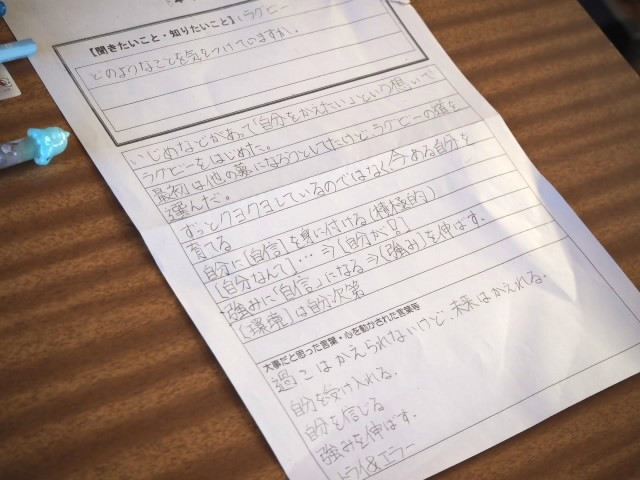 【聞きたいこと・知りたいこと】ラグビー
どのようなことを気をつけていますか。
いじめなどがあって「自分をかえたい」という想いで
ラグビーをはじめた。
最初は他の薬になろうとしてたけどラグビーの道を
選んだ。
ずっとクヨクヨしているのではなく今ある自分を
育てる
自分に[自信]を身に付ける(積極的)
[自分なんて]…⇒[自分が!]
強みに「自信」になる⇒[強み]を伸ばす。
[環境]は自分次第
大事だと思った言葉・心を動かされた言葉等
過こはかえられないけど、未来はかえれる。
自分を受け入れる。
自分を信じる
強みを伸ばす。
トライ&エラー